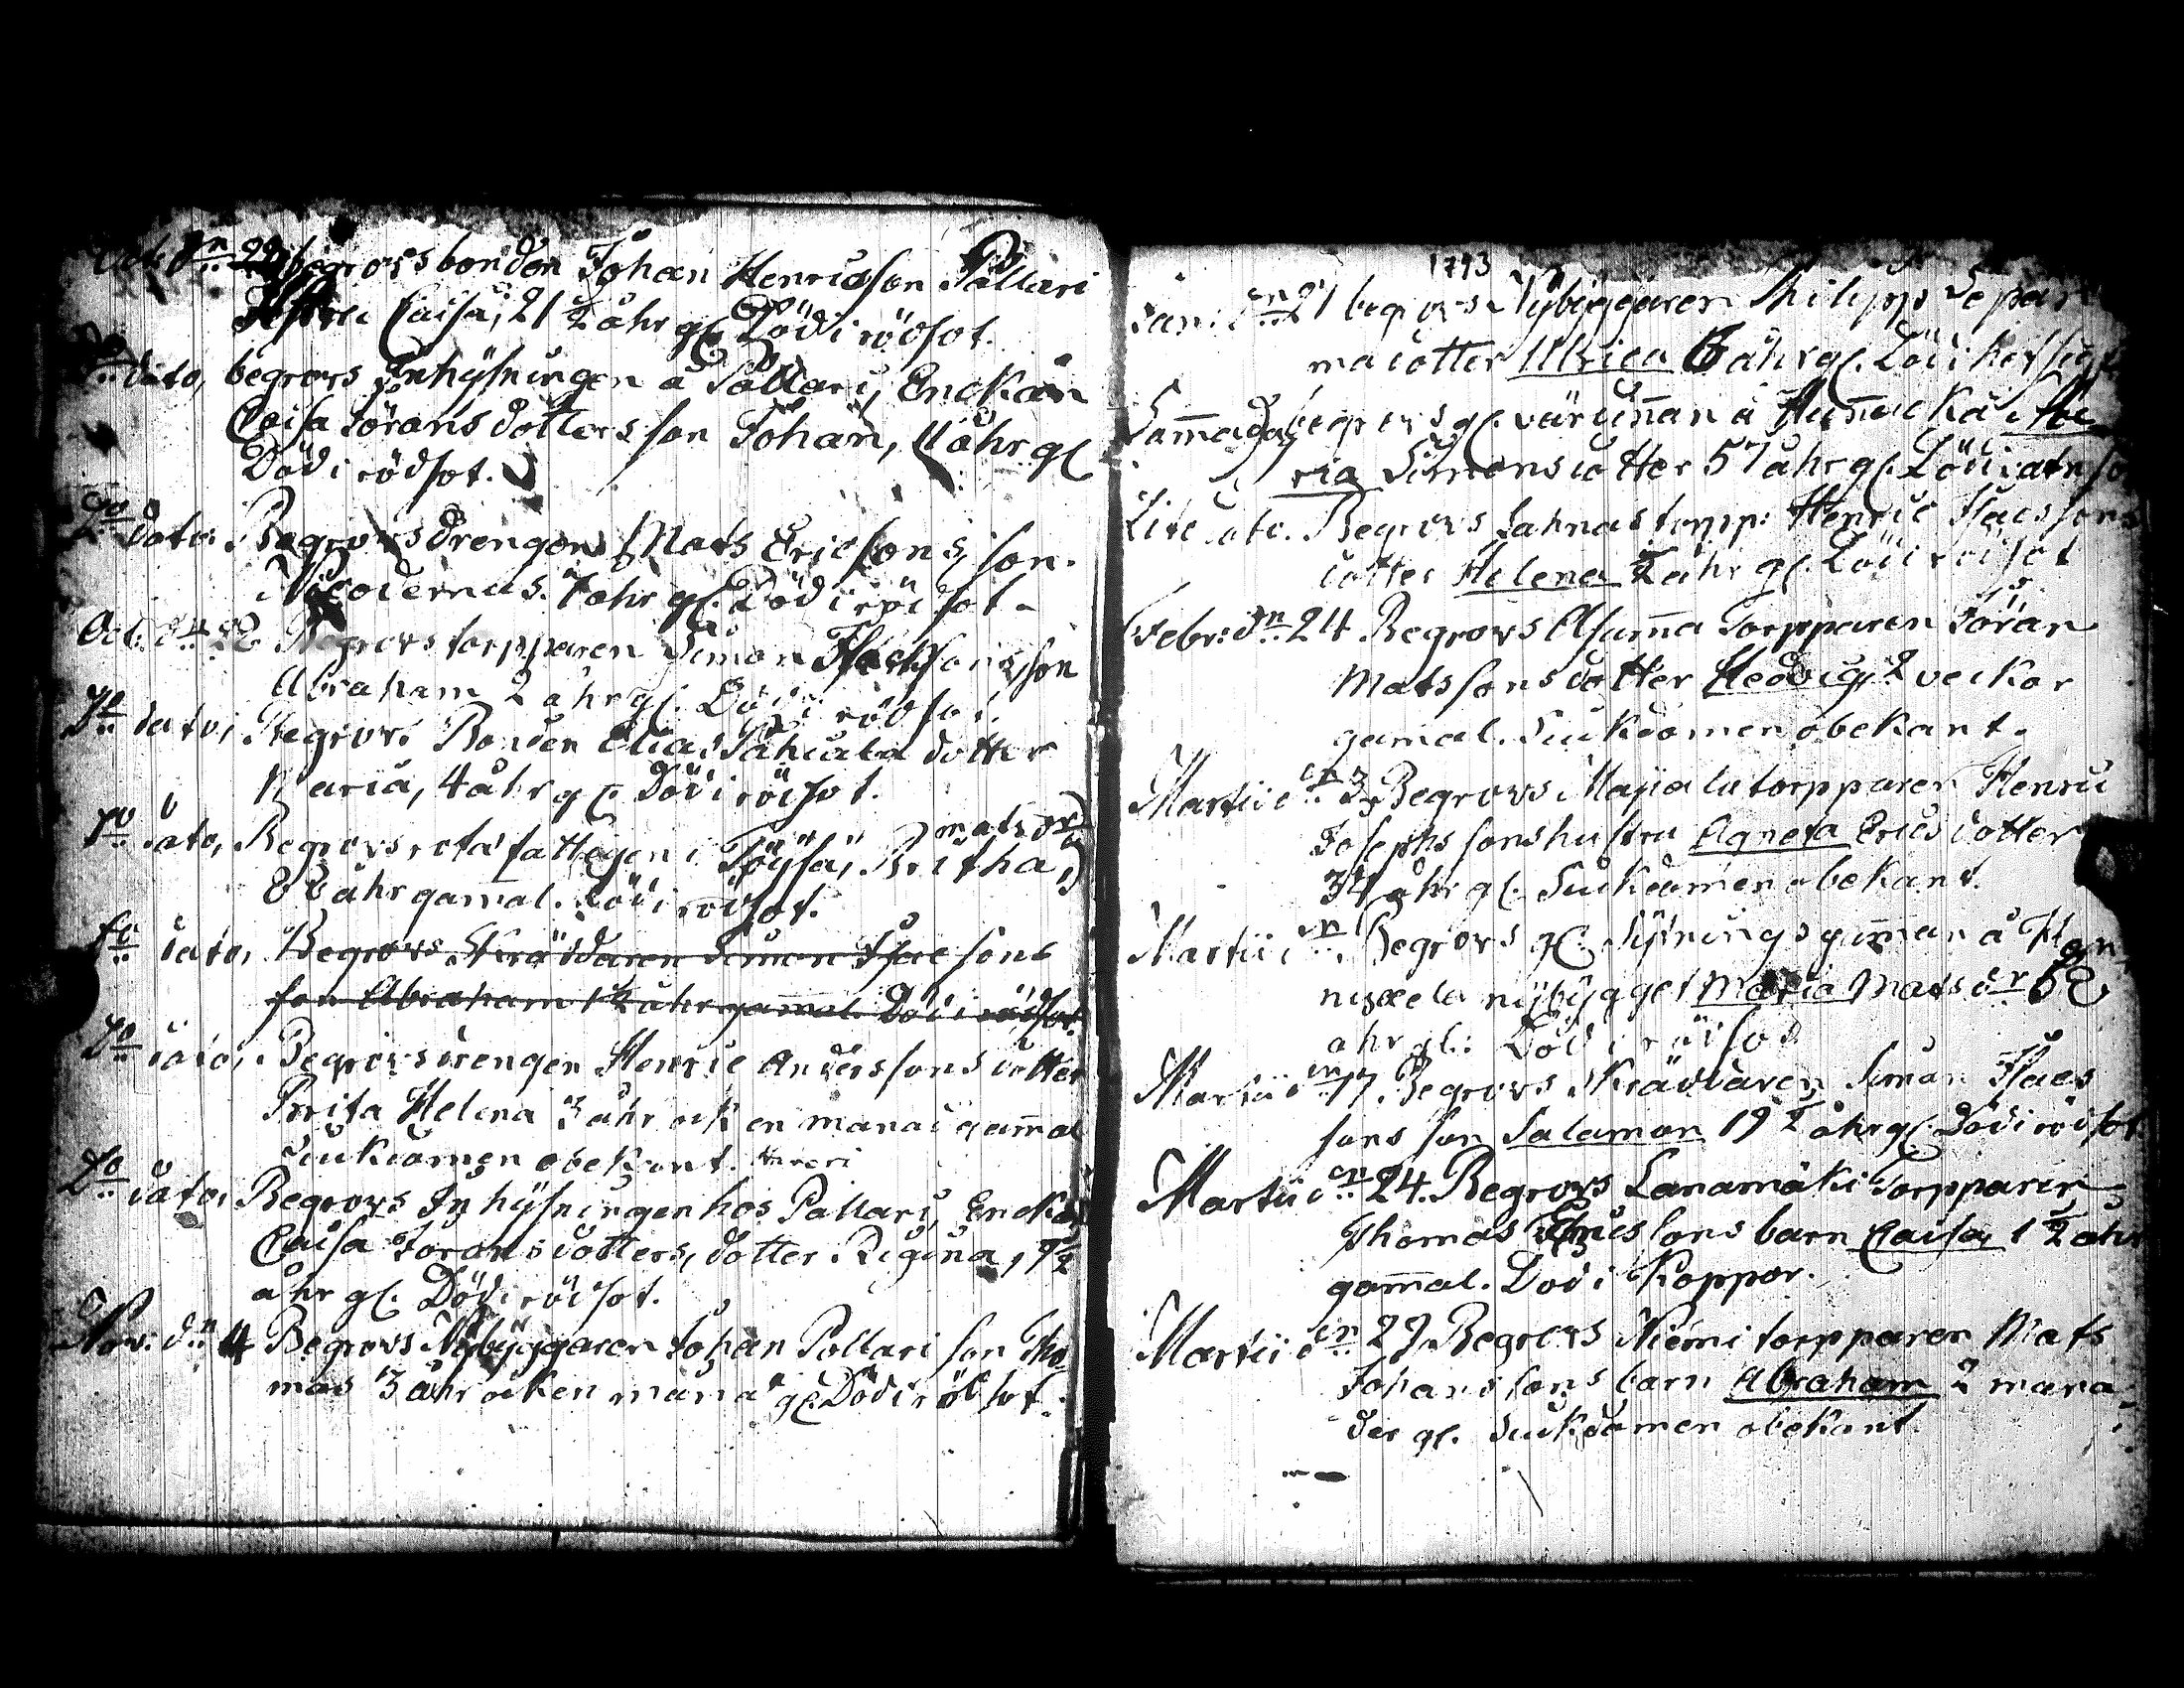 begrovs bonden Johan Henricsson Pållari
Hustru Caisa, 21 1/2 åhr gl. Död i rödsot.
Do dato, begrovs Inhysningen å Pållari, Enckan
Caisa Jöransdotters son Johan, 11 åhr gl
Död i rödsot.
Do dato. Begrovs drengen Mats Ericsons son.
Nicodemus. 7 åhr gl. Död i rödsot.
Oct: dn Begrovs torpparen Simon Isacssons son
Abraham 2 åhr gl. Död i rödsot
Do dato, Begrovs Bonden Elias dotter
Maria, 4 åhr gl. Död i rödsot.
Do dato, Begrovs rota fattigen i Töysä, Britha, Mats dr
88 åhr gammal. Död i rödsot.
Do dato, Begrovs Skräddaren Simon Isacsons
son Abraham 1 1/2 åhr gammal. Död i rödsot.
Do dato, Begrovs drengen Henric Anderssons dotter
Brita Helena 3 åhr ock en månad gammal
Siukdomen obekant.
Do dato, Begrovs Inhysningen hos Pallari, Enckan
Caisa Joransdotters, dotter Regina, 9 1/2
åhr gl. Död i rödsot.
Nov: dn 4 Begrovs Nybyggaren Johan Pollari son Tho
mas 3 åhr ock en måna gl. Död i rödsot.
1793
Jan: dn 21 begrovs Nybyggaren Philipp
dotter Ulrica 6 åhr gl. Död i
Samma dag begrovs gl. å Ma
ria Simonsdotter 57 åhr gl. Död i
Begrovs torpp: Henric Isacssons
dotter Helena åhr gl. Död i rödsot
Febr: dn 24 Begrovs Torpparen Jöran
Matssons dotter Hedvig 2 veckor
gamal. Siukdomen obekant.
Martii dn 3 Begrovs torpparen Henric
Josephssons hustru Agneta Ericsdotter
34 åhr gl. Siukdomen obekant.
Martii dn Begrovs gl. Sytnings gumman å
nybygget Maria Mats dr 68
åhr gl: Död i rödsot
Martii dn 17. Begrovs Skräddaren Simon Isacs
sons son Salamon 19 1/2 åhr gl. Död i rödsot
Martii dn 24. Begrovs Lanamäki Torpparen
Thomas Ericssons barn Caisa, 1 1/2 åhr
gammal. Död i Koppor.
Martii dn 27 Begrovs Niemi torpparen Mats
Johanssons barn Abraham 2 måna
der gl. Siukdomen obekant.